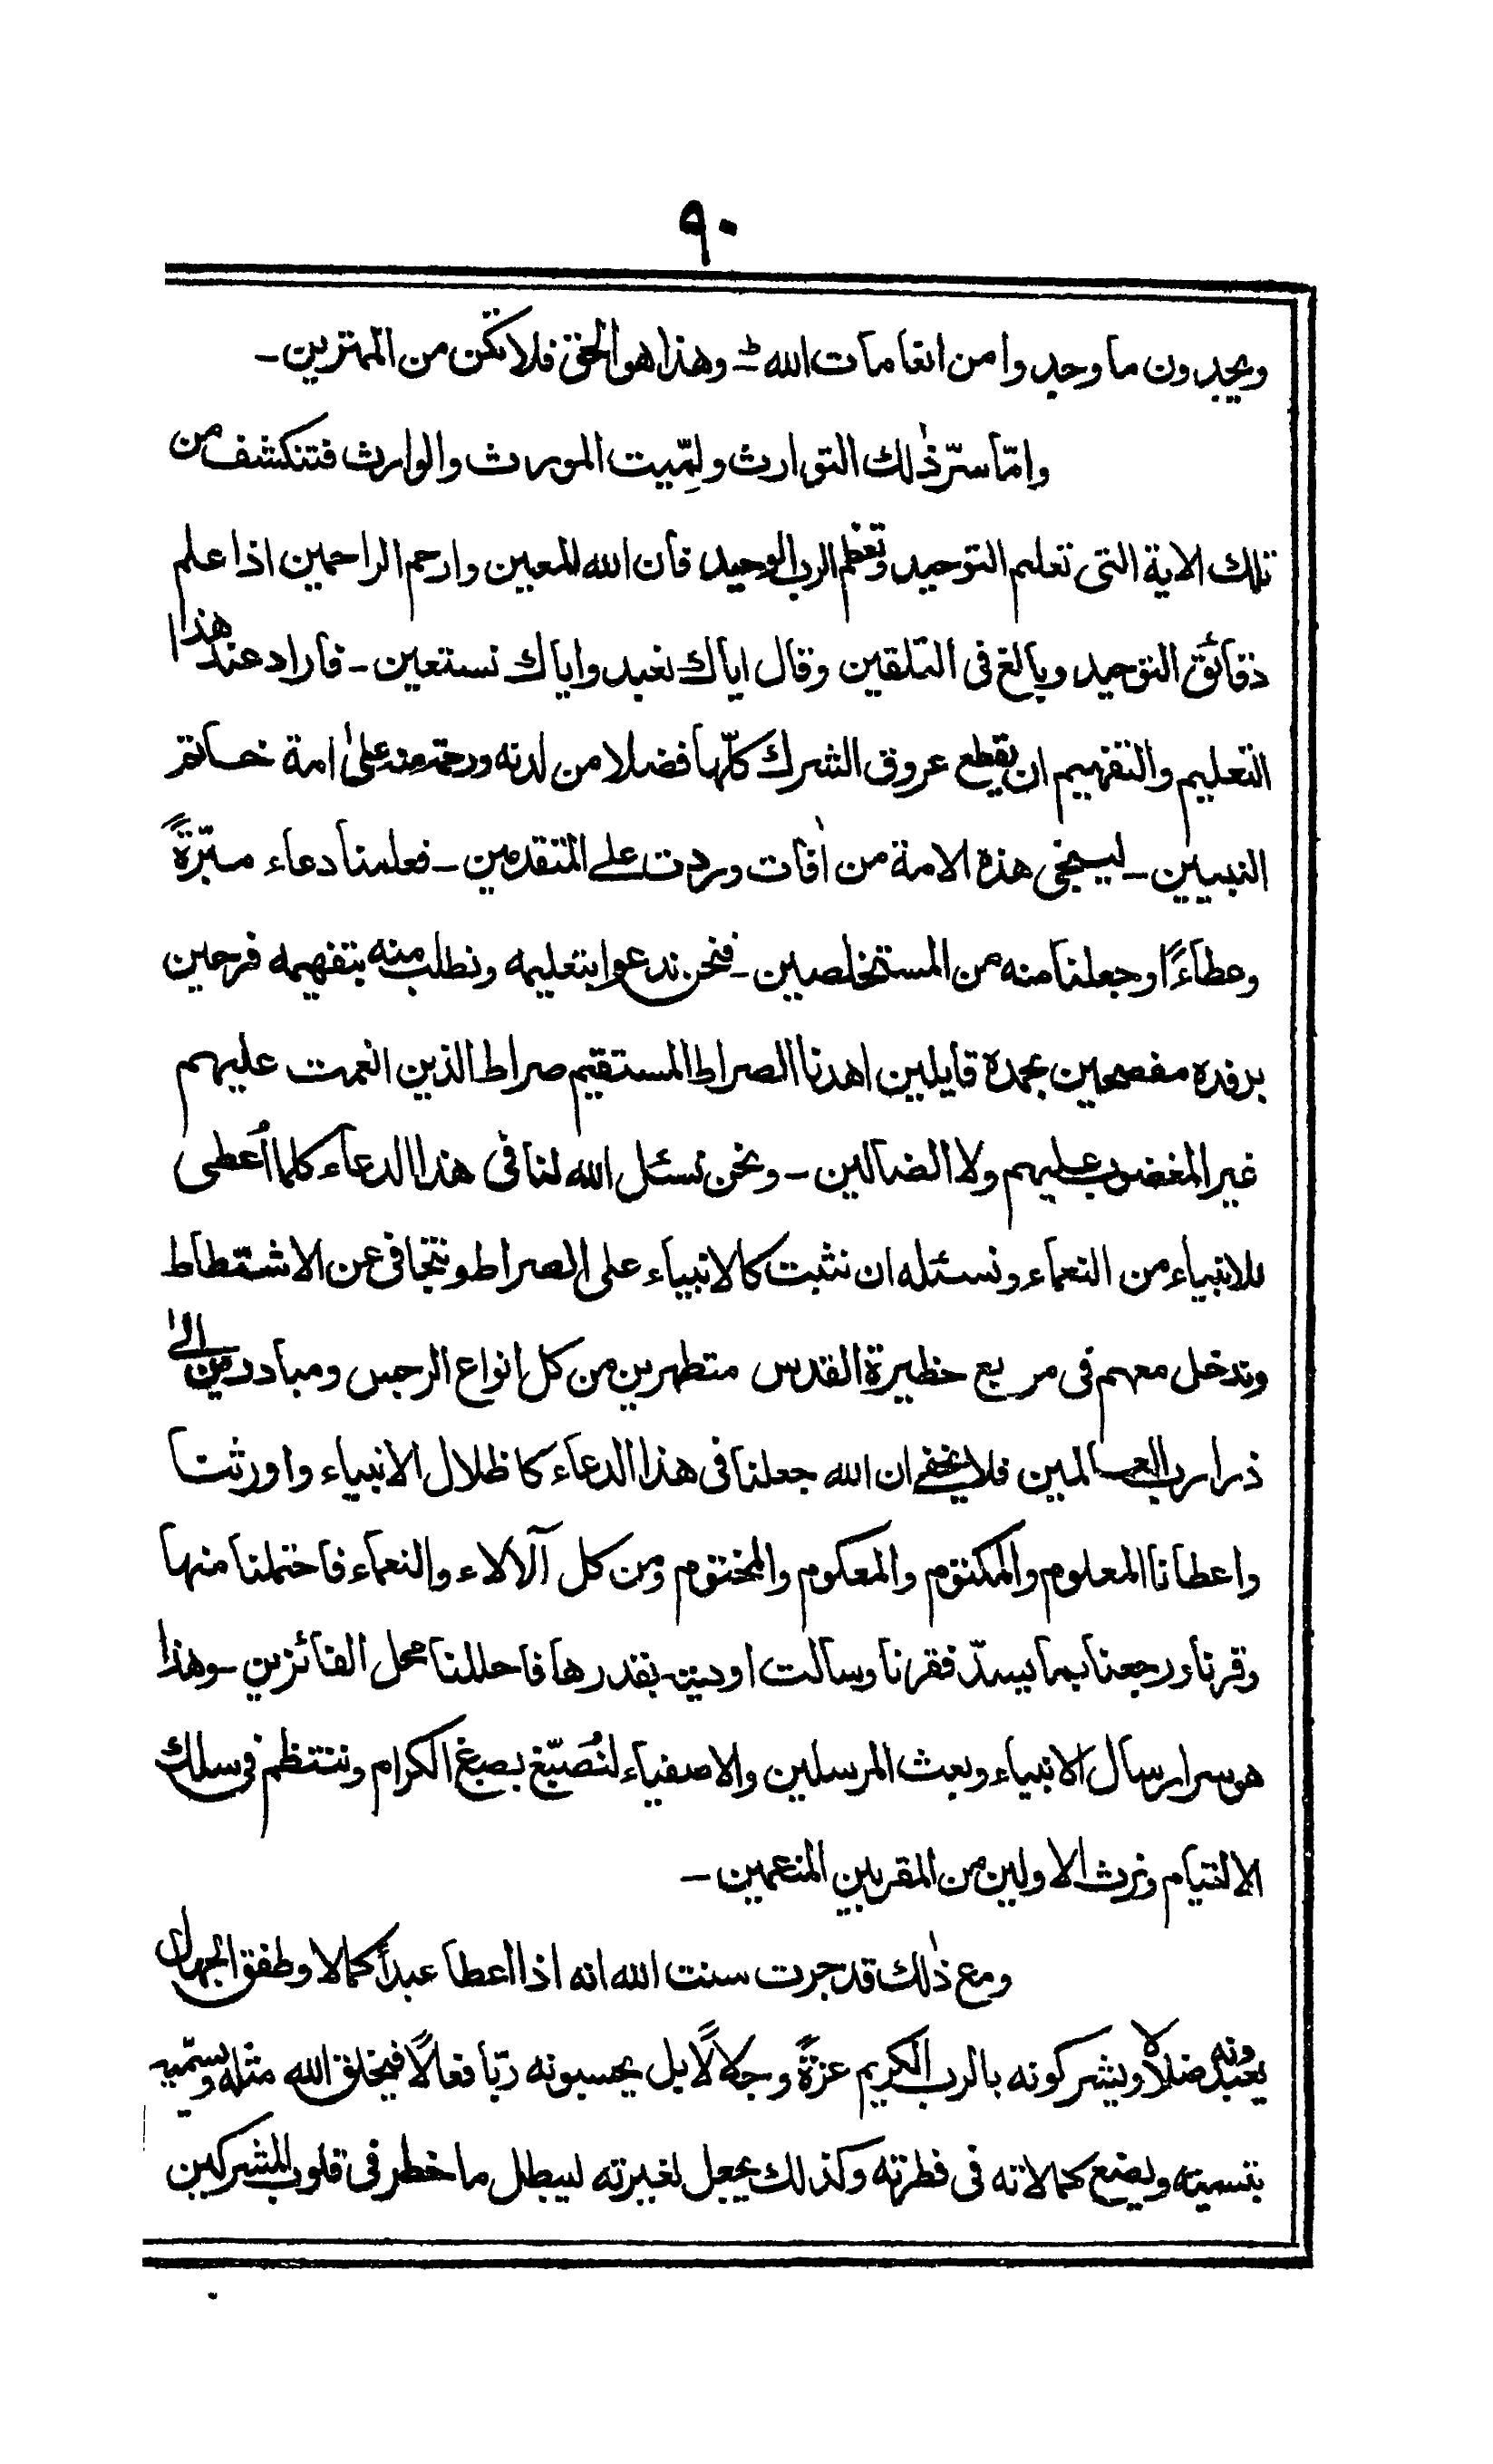 ٩٠
ويجدون ما وجدوا من انعامات الله ـ وهذا هو الحق فلا تكن من الممترين ـ
وامّا سرّ ذٰلك التوارث ولمّية المورث والوارث فتنكشف من
تلك الاية التى تعلم التوحيد وتعظم الرب الوحيد فان الله المعين وارحم الراحمين اذا علم
دقائق التوحيد وبالغ فى التلقين وقال اياك نعبد واياك نستعين ـ فاراد عند هذا
التعليم والتفهيم ان يقطع عروق الشرك كلّها فضلا من لدنه ورحمة منه علىٰ امة خاتم
النبيين ـ لينجى هذه الامة من اٰفات وردت على المتقدمين ـ فعلمنا دعاء مبرّةً
وعطاءً وجعلنا منه من المستخلصين ـ فنحن ندعوا بتعليمه ونطلب منه بتفهيمه فرحين
برفده مفصحين بحمده قايلين اهدنا الصراط المستقيم صراط الذين انعمت عليهم
غير المغضوب عليهم ولا الضالين ـ ونحن نسئل الله لنا فى هذا الدعاء كلما اُعطى
للانبياء من النعماء ونسئله ان نثبت كالانبياء على الصراط ونتجافى عن الاشتطاط
وندخل معهم فى مربع حظيرة القدس متطهرين من كل انواع الرجس ومبادرين الى
ذرا رب العالمين فلا يخفى ان الله جعلنا فى هذا الدعاء كاظلال الانبياء واورثنا
واعطانا المعلوم والمكتوم والمعكوم والمختوم ومن كل آلالاء والنعماء فاحتملنا منها
وقرنا ورجعنا بما يسدّ فقرنا وسالت اودية بقدرها فاحللنا محل الفائزين ـ وهذا
هو سر ارسال الانبياء وبعث المرسلين والاصفياء لنُصَبّغ بصبغ الكرام وننتظم فى سلك
الالتيام ونرث الاولين من المقربين المنعمين ـ
ومع ذٰلك قد جرت سنت الله انه اذا اعطا عبداً كمالا وطفق الجهال
يعبدونه ضلالا ويشركونه بالرب الكريم عزةً وجلالًا بل يحسبونه ربّا فعالًا فيخلق الله مثله ويسمّيه
بتسميته ويضع كمالاته فى فطرته وكذلك يجعل لغيرته ليبطل ما خطر فى قلوب المشركين